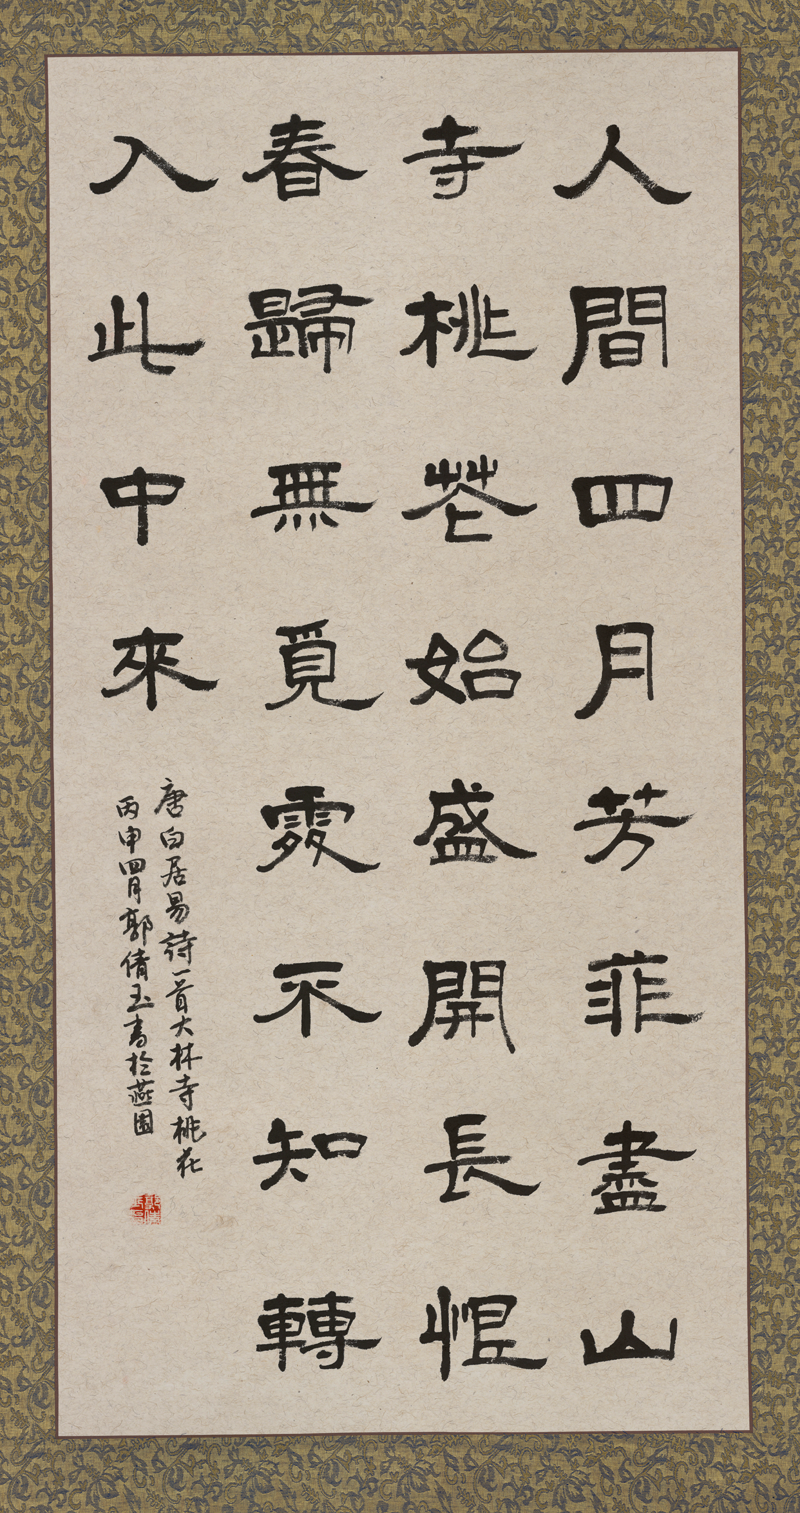 人間四月芳菲盡山
寺桃花始盛開長恨
春歸無覓處不知轉
入此中來
唐白居易詩一首大林寺桃花
丙申四月郭倩玉書於燕園